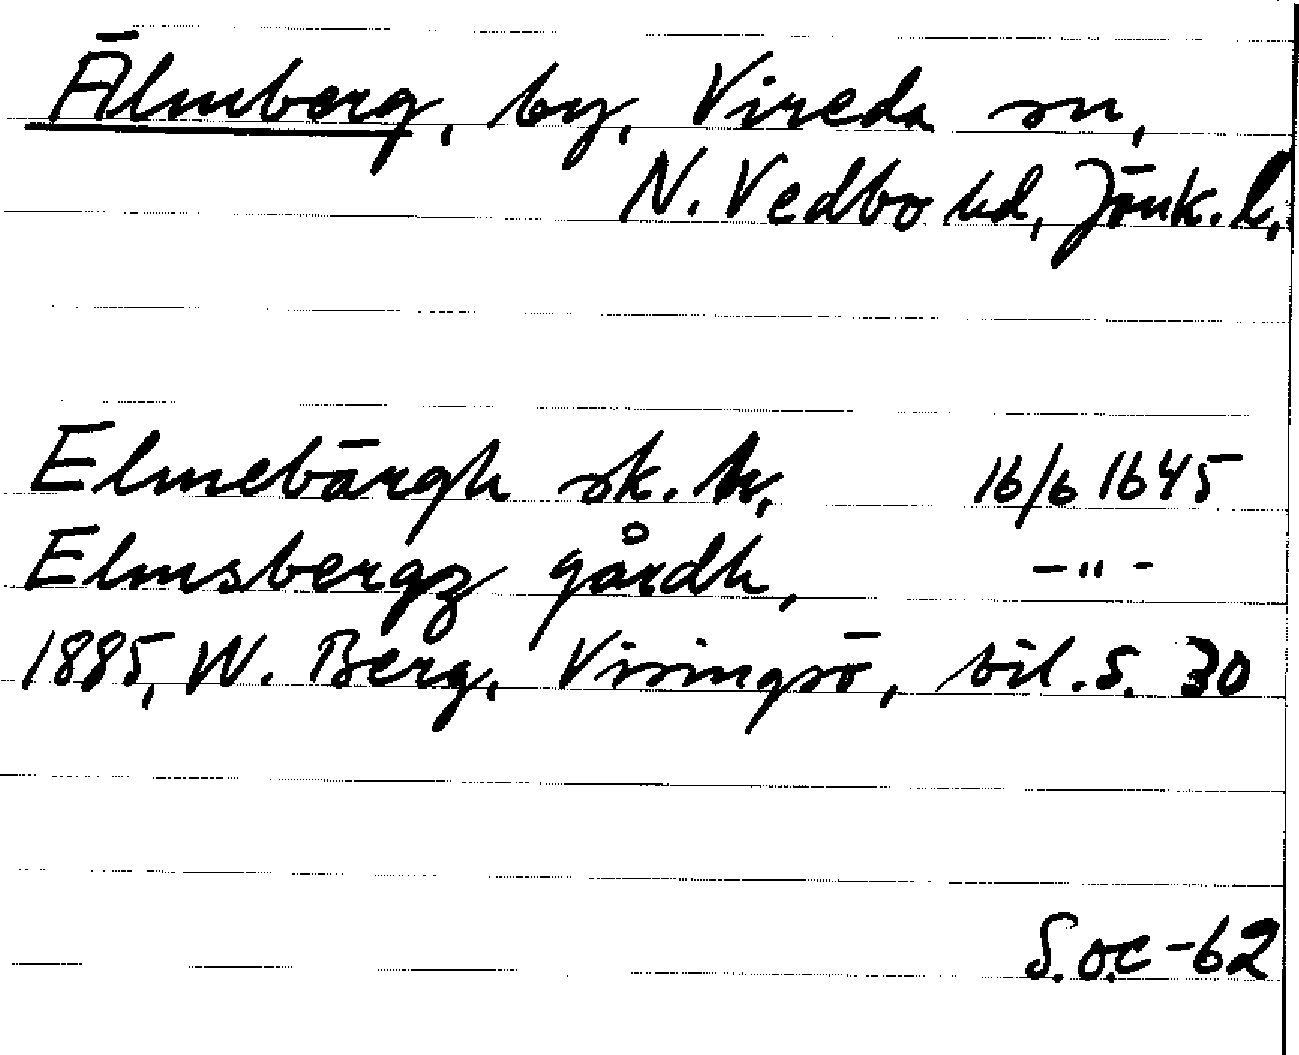 Älmberg, by, Vireda sn,
N. Vedbo hd, Jönk. l.
Elmebärgh sk. hr, 16/6 1645
Elmsbergz gårdh, -"-
1885, W. Berg, Visingsö, bil. S. 30
S.o.c -62